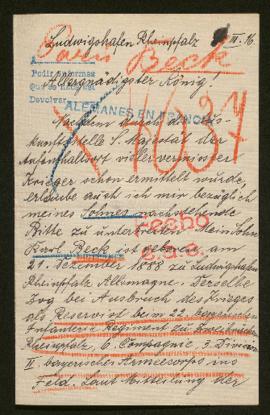 Ludwigshafen Rheinpfalz IV. 16
París Beck
A
Pedir informes
Devolver
Allergnädigster König!
ALEMANES EN FRANCIA
Nachdem durch die Aus-
kunftstelle S. Majestät der
Aufenthaltsort vieler vermisster
Krieger schon ermittelt wurde,
erlaube auch ich mir bezüglich
meines Sohnes nachstehende
Bitte zu unterbreiten. Mein Sohn
Karl Beck ist geboren am
21. Dezember 1888 zu Ludwigshafen
Rheinpfalz Allemagne. Derselbe
zog bei Ausbruch des Krieges
als Reservist beim 22. bayerischen
Infanterie Regiment zu Zweibrücken
Rheinpfalz, 6. Compagnie, 3. Division
II. bayerischen Armeecorps ins
Feld. Laut Mitteilung der
Fecho